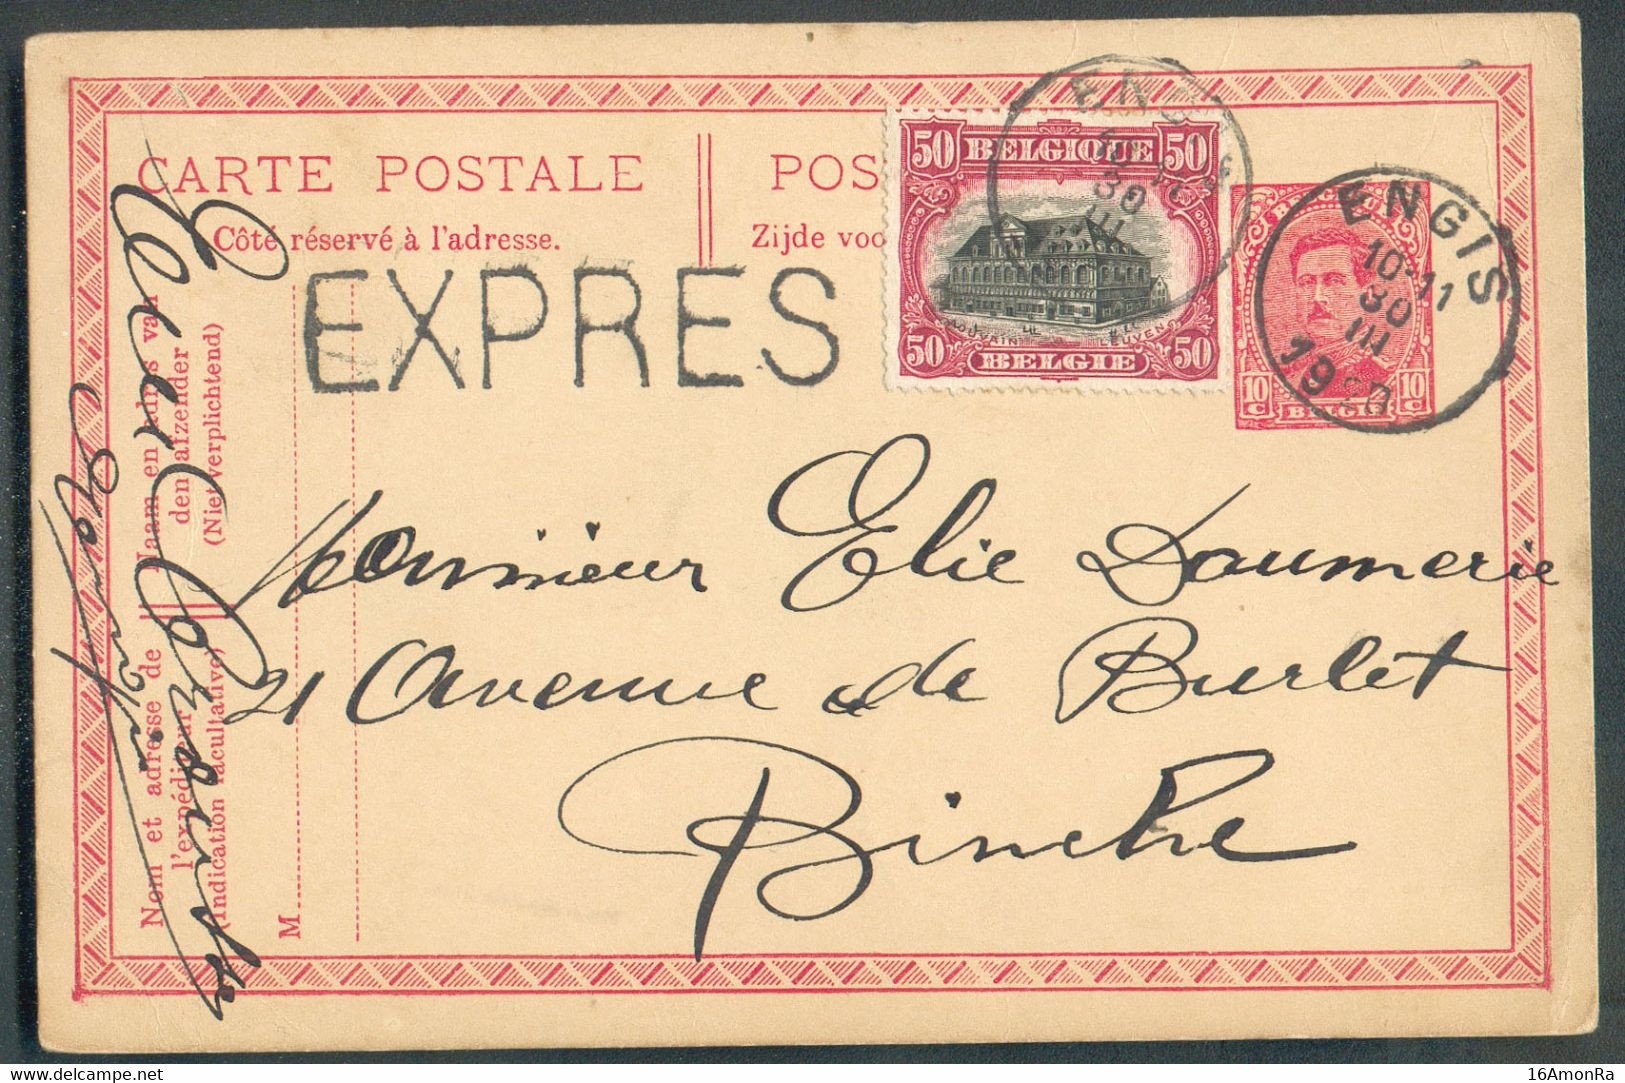 CARTE POSTALE
POS
Côté réservé à l'adresse.
Zijde voo
EXPRES
50 BELGIQUE 50
LEUVEN
50 BELGIE 50
ENGIS
10-11
30
III
1920
10 C
BELGIË
10 C
Monsieur Elie Daumerie
21 Avenue de Burlet
Binche
Naam en adres van
den afzender
(Niet verplichtend)
Nom et adresse de
l'expéditeur
(Indication facultative)
M
delcampe.net
16AmonRa